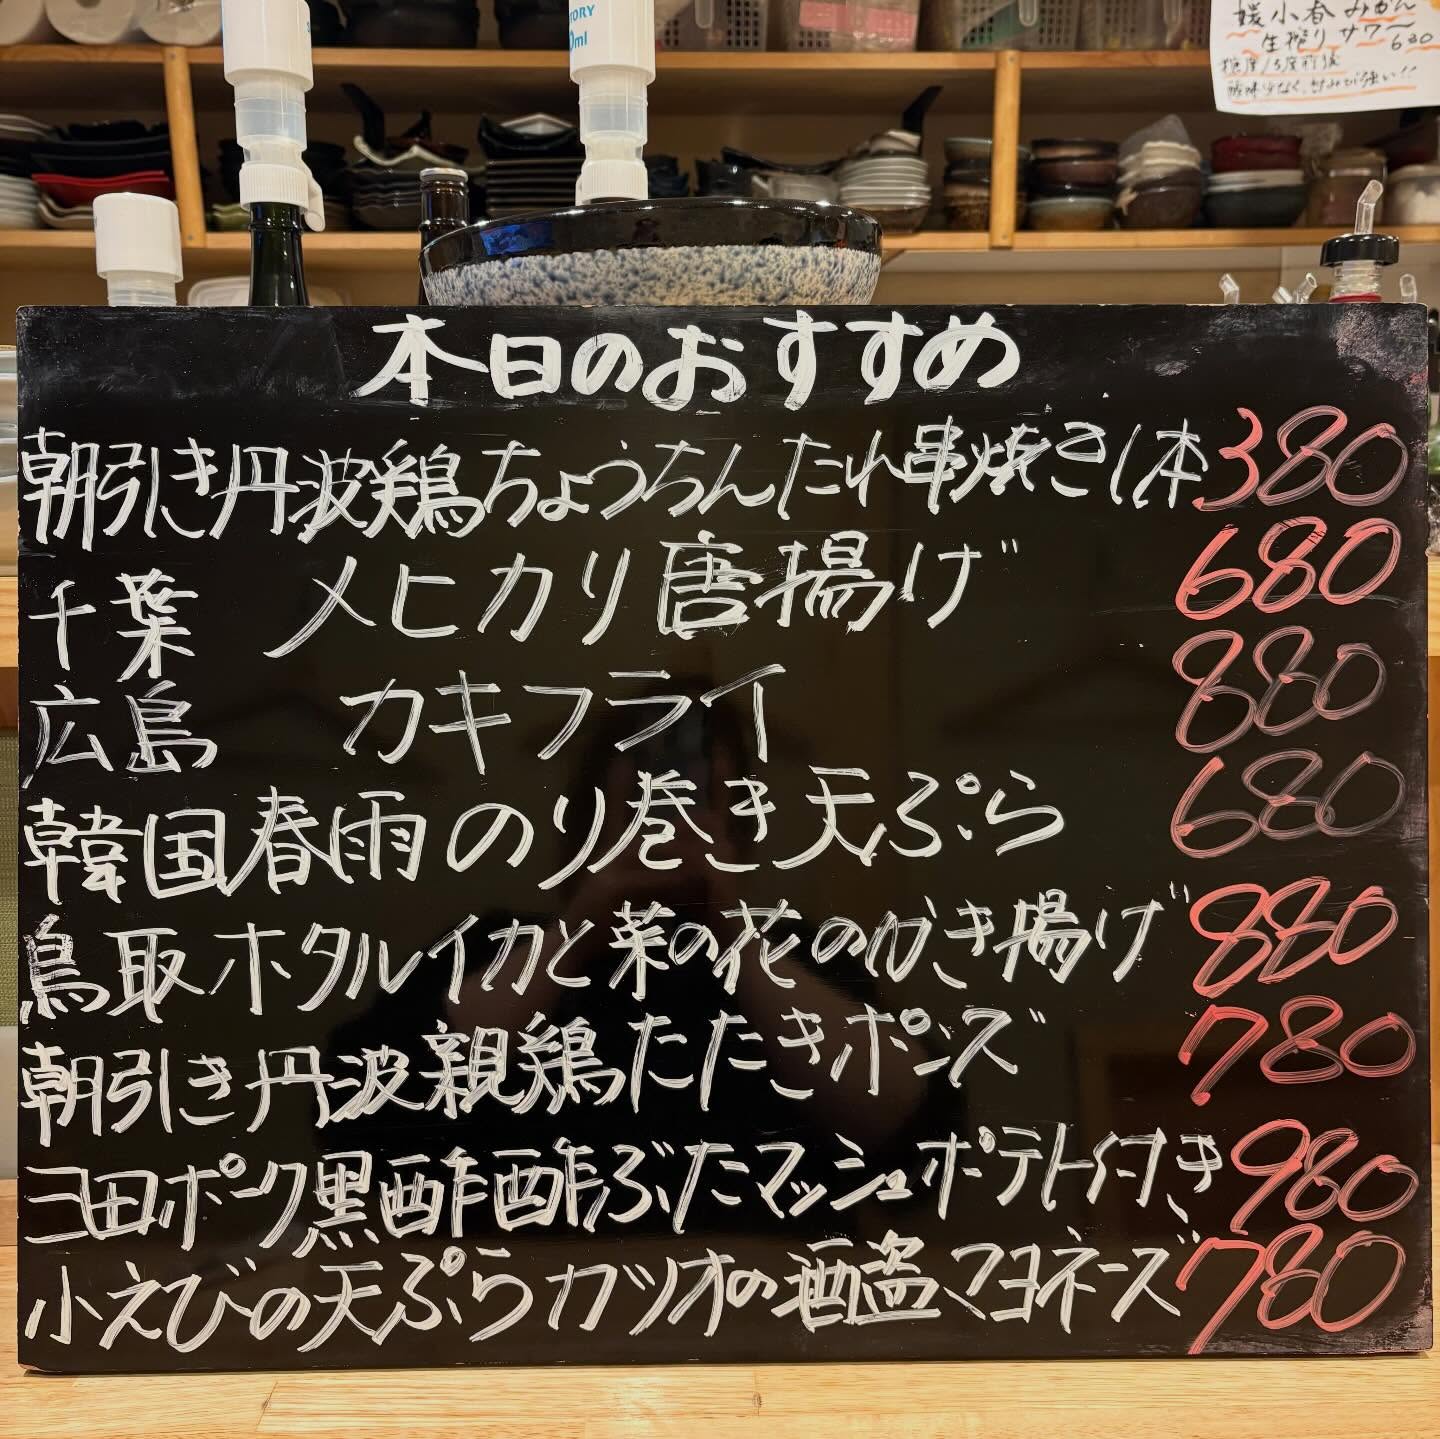 ORY
0ml
媛小春みかん
生搾りサワー
630
糖度13度前後
酸味少なく、甘みが強い!!
本日のおすすめ
朝引き丹波鶏ちょうちんたれ串焼き1本 380
千葉 メヒカリ唐揚げ 680
広島 カキフライ 880
韓国春雨のり巻き天ぷら 680
鳥取ホタルイカと菜の花のかき揚げ 880
朝引き丹波親鶏たたきポンズ 780
三田ポーク黒酢酢ぶたマッシュポテト付き 980
小えびの天ぷらカツオの酒盗マヨネーズ 780